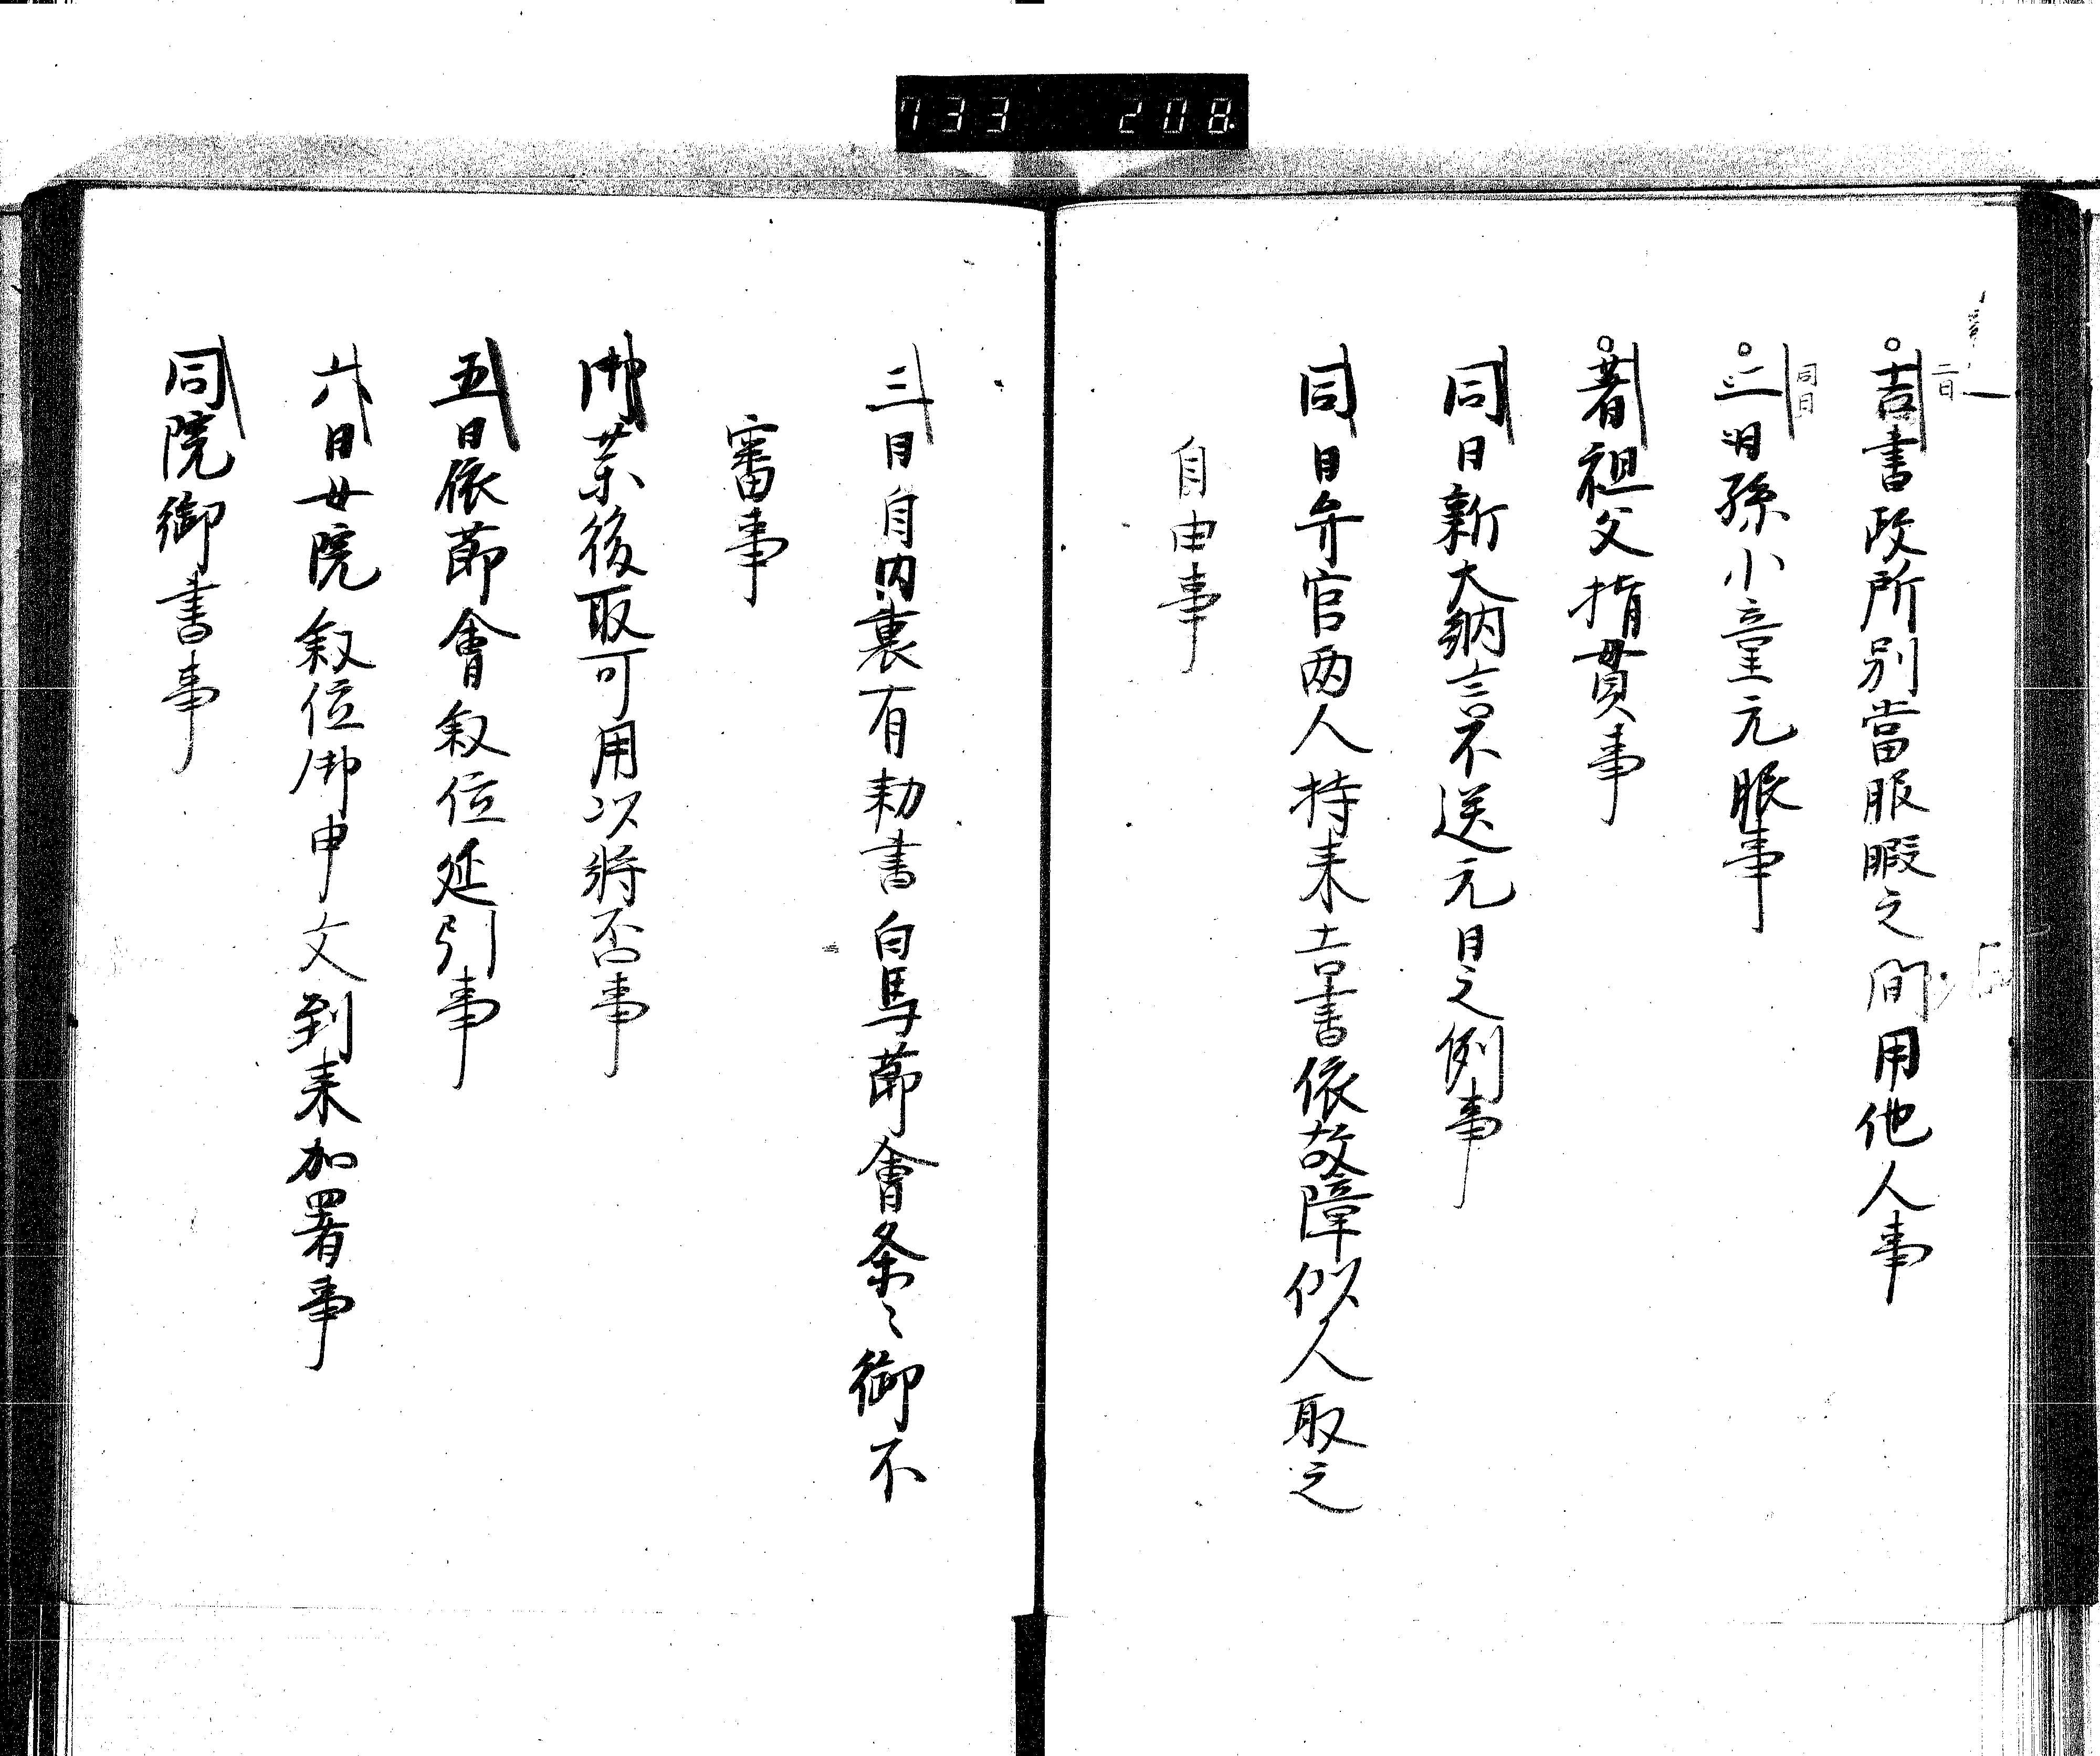 733 208
二日
。吉書政所別當服暇之間用他人事
同日
。二日孫小童元服事
。著祖父指貫事
同日新大納言不送元日之例事
同日弁官両人持来吉書依故障以人取之
自由事
三日自内裏有勅書白馬節會条々御不
審事
御業後取可用次将否事
五日依節會叙位延引事
六日女院叙位御申文到来加署事
同院御書事